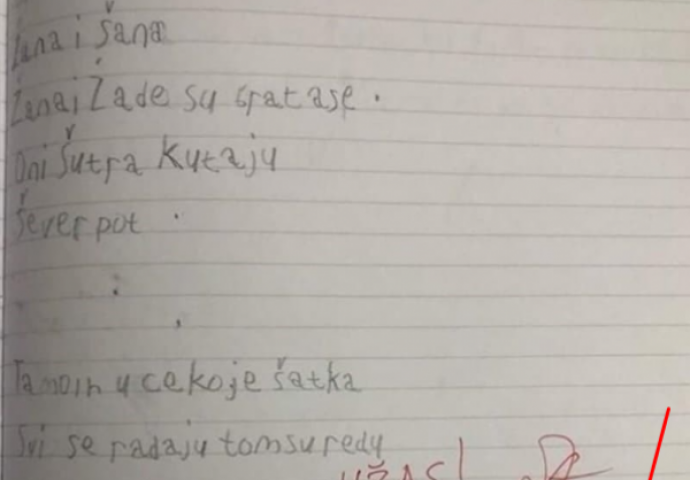 Žana i Šana
Žana i Žade su spatase.
Oni šutra kutaju
Šever pot.
Tamoih u cekoje šatka
Svi se radaju tomsuredu
UŽAS!